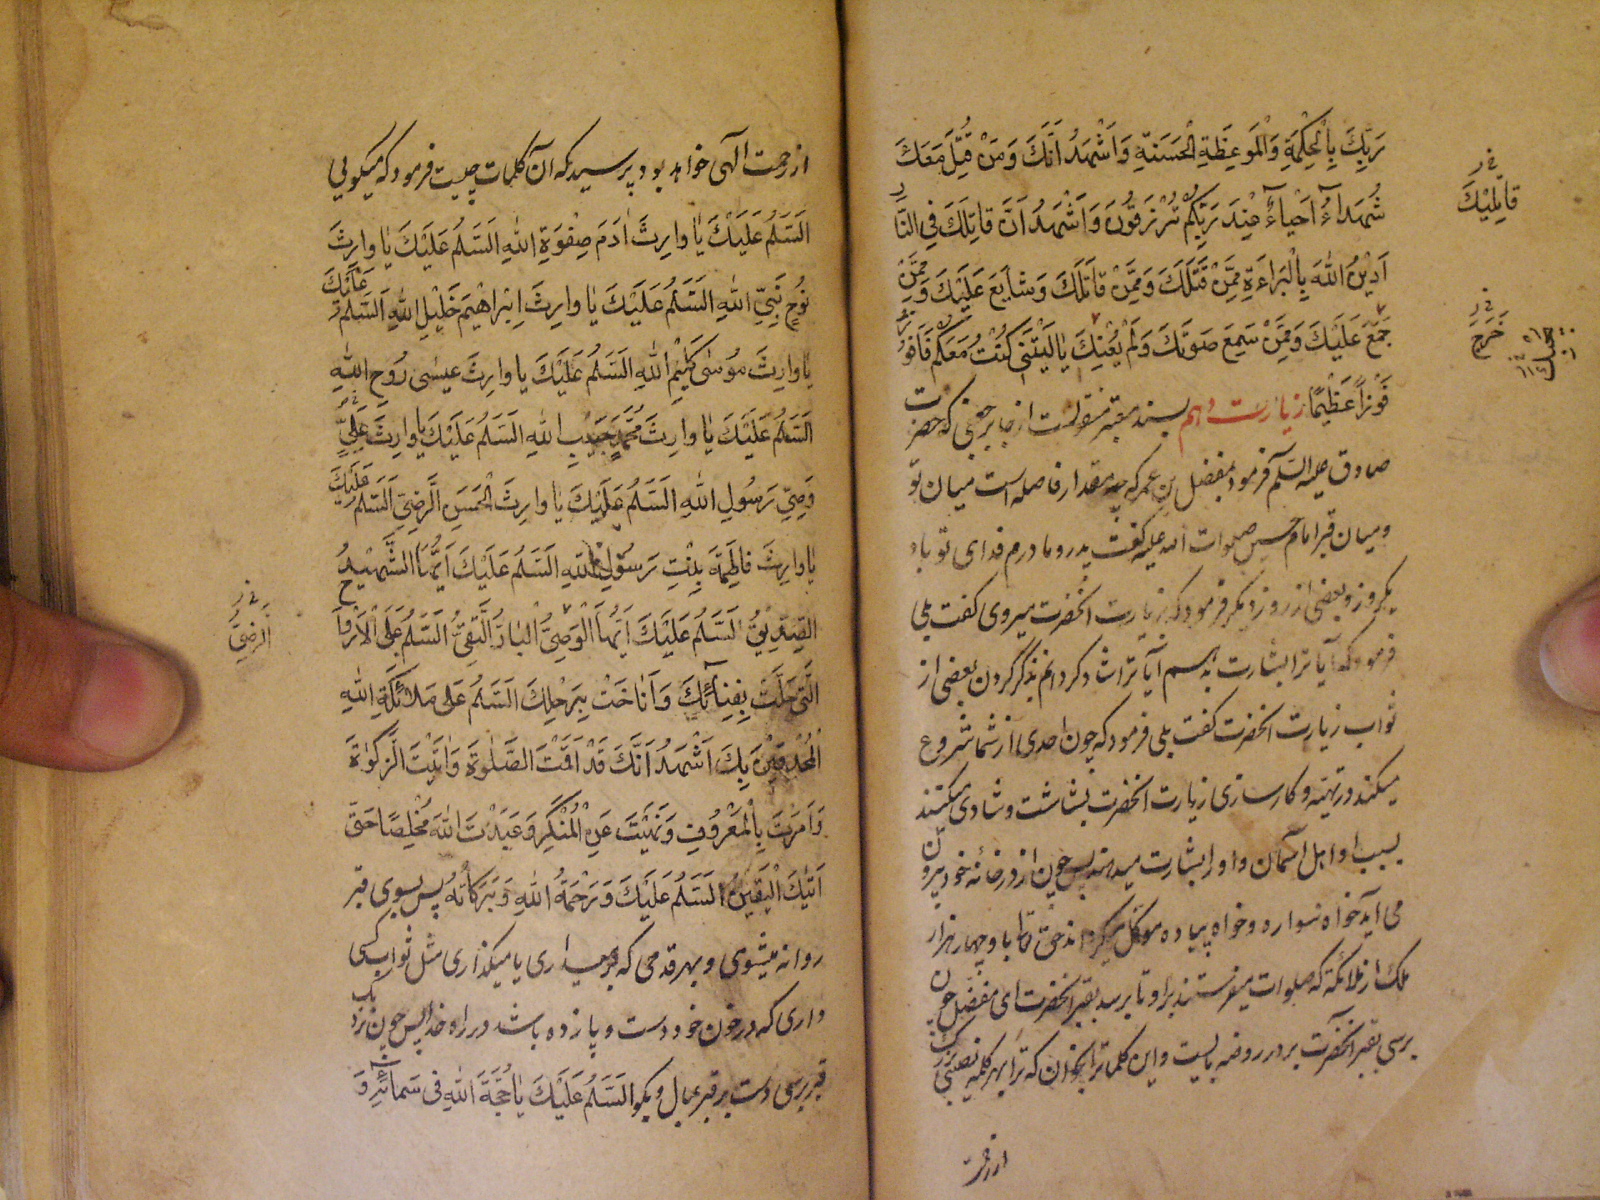 رَبِّكَ بِالْحِكْمَةِ وَالْمَوْعِظَةِ الْحَسَنَةِ وَاَشْهَدُ اَنَّكَ وَمَنْ قُتِلَ مَعَكَ
شُهَدآءُ اَحْياءٌ عِنْدَ رَبِّكُمْ تُرْزَقُونَ وَاَشْهَدُ اَنَّ قاتِلَكَ فِي النَّارِ
اَدِيْنُ اللهَ بِالْبَرَاءَةِ مِمَّنْ قَتَلَكَ وَمِمَّنْ قاتَلَكَ وَشايَعَ عَلَيْكَ وَمِمَّنْ
جَمَعَ عَلَيْكَ وَمِمَّنْ سَمِعَ صَوْتَكَ وَلَمْ يُعِنْكَ يا لَيْتَنِي كُنْتُ مَعَكُمْ فَاَفُوزَ
فَوْزاً عَظِيْمًا زيارت دهم بسند معتبر منقولست از جابر جعفی که حضرت
صادق علیه السّلم فرمود بمفضل بن عمر که چه مقدار فاصله است میان تو
و میان قبر امام حسین صلوات الله علیه گفت پدر و مادرم فدای تو باد
یکروز و بعضی از روز دیگر فرمود که بزیارت آنحضرت میروی گفت بلی
فرمود که آیا ترا بشارت بدهم آیا ترا شاد گردانم بذکر کردن بعضی از
ثواب زیارت آنحضرت گفت بلی فرمود که چون احدی از شما شروع
میکند در تهیّه و کارسازی زیارت آنحضرت بشاشت و شادی میکنند
بسبب او اهل آسمان و او را بشارت میدهند پس چون از در خانه خود بیرون
می آید خواه سواره و خواه پیاده موکّل میگرداند حق تعالی با و چهار هزار
ملک از ملائکه که صلوات میفرستند بر او تا برسد بقبر آنحضرت ای مفضل چون
برسی بقبر آنحضرت بر در روضه بایست و این کلمات را بخوان که ترا بهر کلمه نصیبی بزرگ
از رحمت
قاتِلِيْكَ
خَرَجَ
از رحمت الهی خواهد بود پرسید که آن کلمات چیست فرمود که میگویی
اَلسَّلَمُ عَلَيْكَ يا وارِثَ ادَمَ صِفْوَةِ اللهِ اَلسَّلَمُ عَلَيْكَ يا وارِثَ
نُوْحٍ نَبِيِّ اللهِ اَلسَّلَمُ عَلَيْكَ يا وارِثَ اِبْراهِيْمَ خَلِيْلِ اللهِ اَلسَّلَمُ عَلَيْكَ
يا وارِثَ مُوسٰى كَلِيْمِ اللهِ اَلسَّلَمُ عَلَيْكَ يا وارِثَ عيسٰى رُوحِ اللهِ
اَلسَّلَمُ عَلَيْكَ يا وارِثَ مُحَمَّدٍ حَبِيْبِ اللهِ اَلسَّلَمُ عَلَيْكَ يا وارِثَ عَلِيٍّ
وَصِيِّ رَسُولِ اللهِ اَلسَّلَمُ عَلَيْكَ يا وارِثَ الْحَسَنِ الرَّضِيِّ اَلسَّلَمُ عَلَيْكَ
يا وارِثَ فاطِمَةَ بِنْتِ رَسُولِ اللهِ اَلسَّلَمُ عَلَيْكَ اَيُّهَا الشَّهِيْدُ
الصِّدِّيْقُ اَلسَّلَمُ عَلَيْكَ اَيُّهَا الْوَصِيُّ الْبارُّ التَّقِيُّ اَلسَّلَمُ عَلَى الْاَرْواحِ
الَّتِي حَلَّتْ بِفِنآئِكَ وَاَناخَتْ بِرَحْلِكَ اَلسَّلَمُ عَلى مَلآئِكَةِ اللهِ
الْمُحْدِقِيْنَ بِكَ اَشْهَدُ اَنَّكَ قَدْ اَقَمْتَ الصَّلٰوةَ وَاٰتَيْتَ الزَّكٰوةَ
وَاَمَرْتَ بِالْمَعْرُوفِ وَنَهَيْتَ عَنِ الْمُنْكَرِ وَعَبَدْتَ اللهَ مُخْلِصًا حَتّى
اَتٰيكَ الْيَقِيْنُ اَلسَّلَمُ عَلَيْكَ وَرَحْمَةُ اللهِ وَبَرَكاتُهُ پس بسوی قبر
روانه میشوی و بهر قدمی که بر میداری یا میگذاری مثل ثواب کسی
داری که در خون خود دست و پا زده باشد در راه خدا پس چون نزدیک
قبر برسی دست بر قبر بمال و بگو اَلسَّلَمُ عَلَيْكَ يا حُجَّةَ اللهِ فِي سَمائِهِ وَ
الرَّضِيُّ